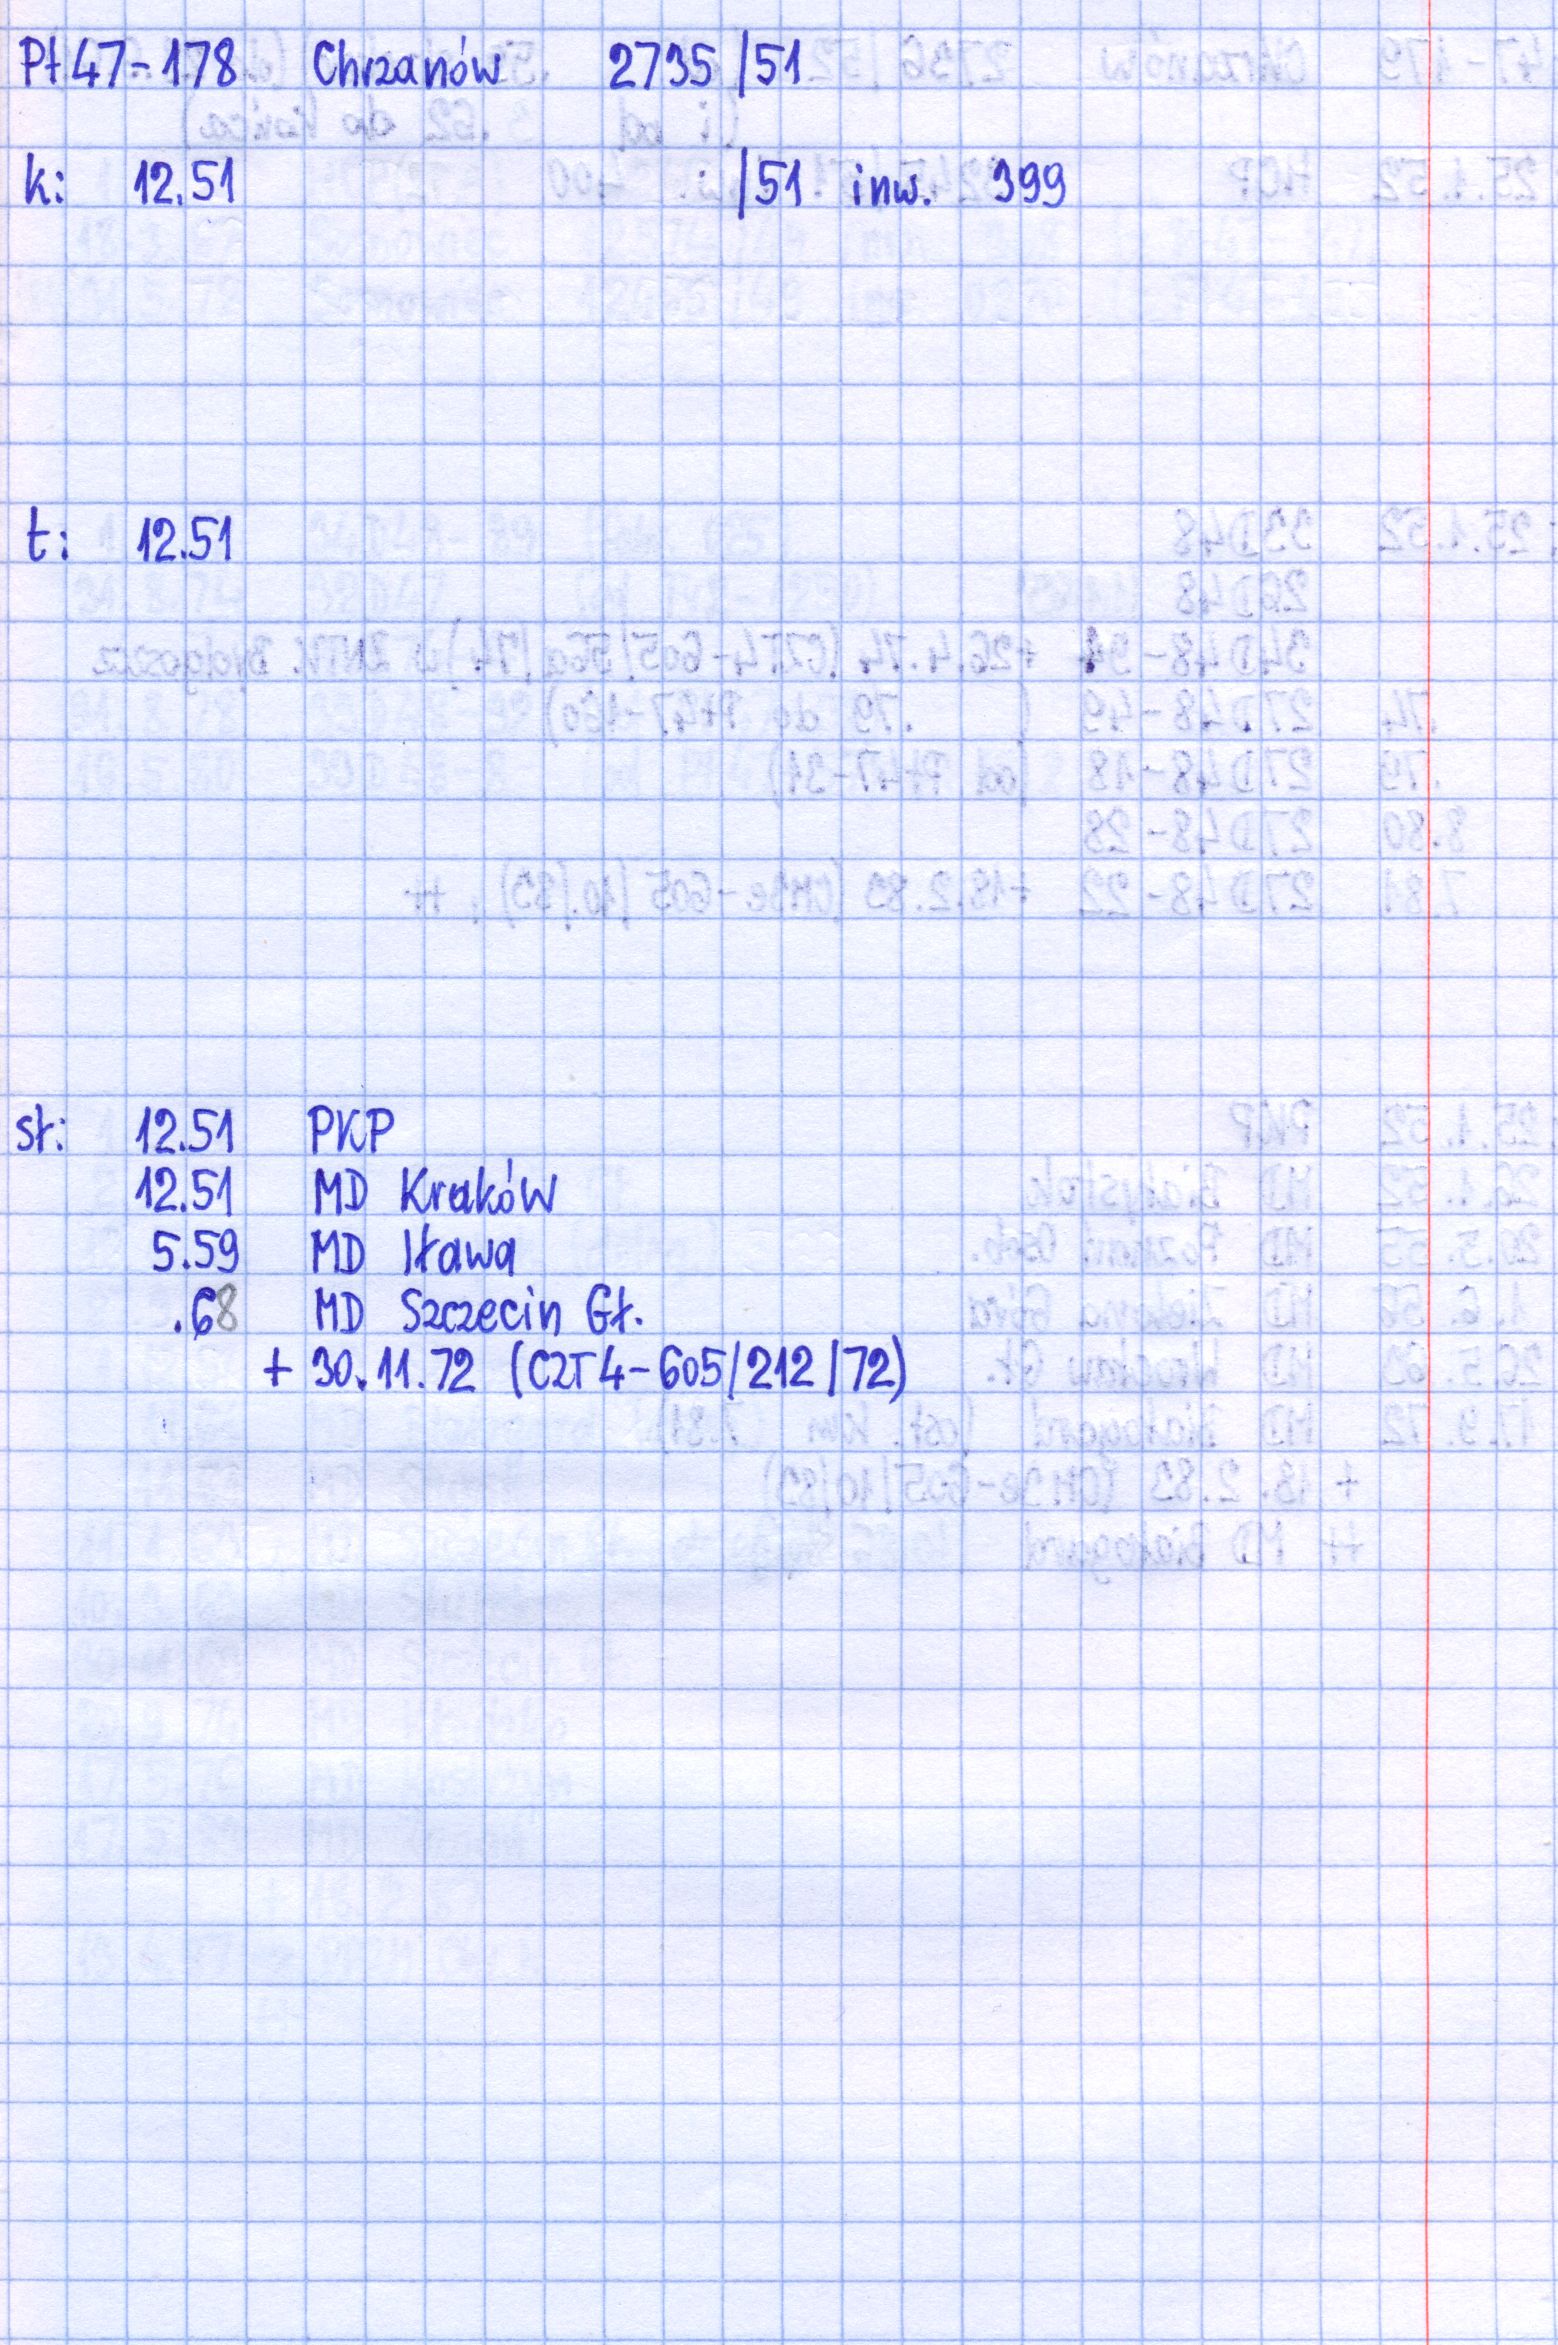 Pt47-178 Chrzanów 2735/51
k: 12.51 /51 inw. 399
t: 12.51
st: 12.51 PKP
12.51 MD Kraków
5.59 MD Iława
.68 MD Szczecin Gł.
+ 30.11.72 (CZT4-605/212/72)